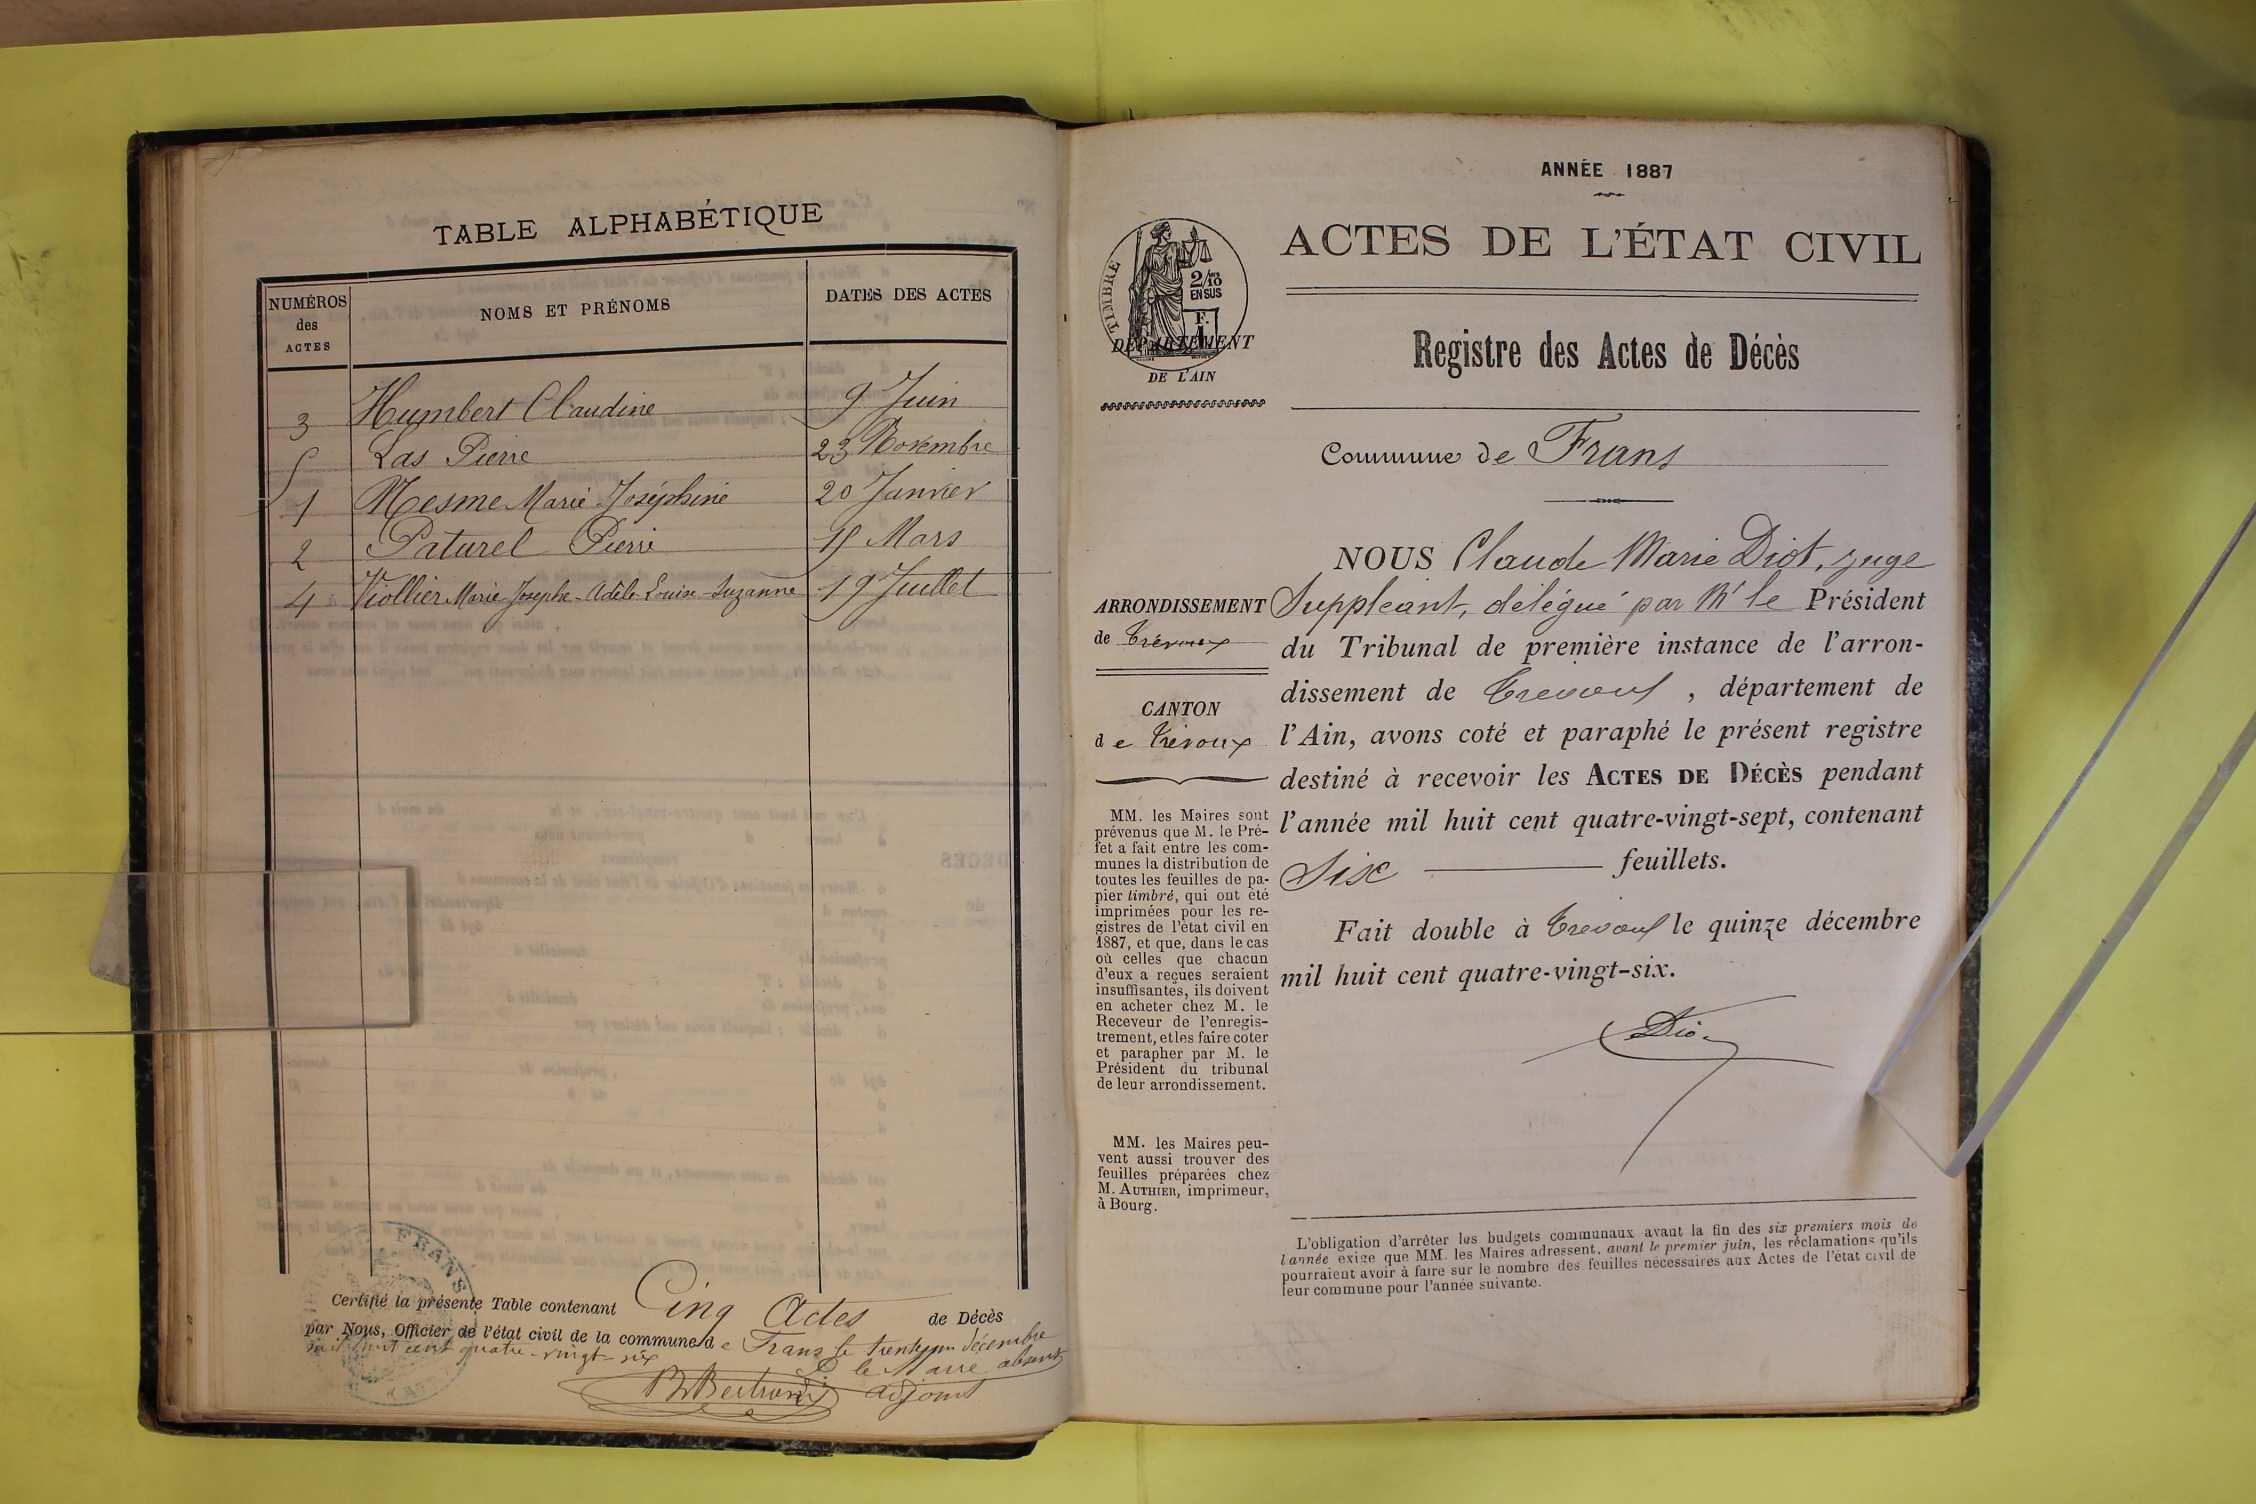 TABLE ALPHABÉTIQUE
NUMÉROS des ACTES
NOMS ET PRÉNOMS
DATES DES ACTES
3 Humbert Claudine 9 Juin
5 Las Pierre 23 Novembre
1 Mesme Marie Joséphine 20 Janvier
2 Paturel Pierre 15 Mars
4 Viollier Marie-Josephe-Adèle-Louise-Suzanne 19 Juillet
Certifié la présente Table contenant Cinq Actes de Décès
par Nous, Officier de l'état civil de la commune de Frans le trente un décembre
mil huit cent quatre-vingt-six
le Maire absent
Bertrand adjoint
FRANS
ANNÉE 1887
ACTES DE L'ÉTAT CIVIL
TIMBRE
2/10
EN SUS
F.
1
DÉPARTEMENT
DE L'AIN
Registre des Actes de Décès
Commune de Frans
ARRONDISSEMENT
de Trévoux
CANTON
de Trévoux
MM. les Maires sont
prévenus que M. le Pré-
fet a fait entre les com-
munes la distribution de
toutes les feuilles de pa-
pier timbré, qui ont été
imprimées pour les re-
gistres de l'état civil en
1887, et que, dans le cas
où celles que chacun
d'eux a reçues seraient
insuffisantes, ils doivent
en acheter chez M. le
Receveur de l'enregis-
trement, et les faire coter
et parapher par M. le
Président du tribunal
de leur arrondissement.
MM. les Maires peu-
vent aussi trouver des
feuilles préparées chez
M. AUTHIER, imprimeur,
à Bourg.
NOUS Claude Marie Diot, juge
Suppléant, délégué par Mr le Président
du Tribunal de première instance de l'arron-
dissement de Trevoux, département de
l'Ain, avons coté et paraphé le présent registre
destiné à recevoir les ACTES DE DÉCÈS pendant
l'année mil huit cent quatre-vingt-sept, contenant
Six feuillets.
Fait double à Trevoux le quinze décembre
mil huit cent quatre-vingt-six.
Diot
L'obligation d'arrêter les budgets communaux avant la fin des six premiers mois de
l'année exige que MM. les Maires adressent, avant le premier juin, les réclamations qu'ils
pourraient avoir à faire sur le nombre des feuilles nécessaires aux Actes de l'état civil de
leur commune pour l'année suivante.